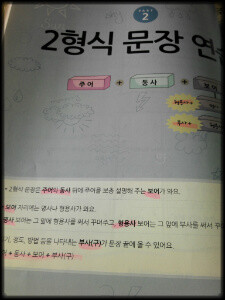 PART
2
2형식 문장 연
주어 + 동사 + 보어
형용사 +
부사 +
+ 2형식 문장은 주어와 동사 뒤에 주어를 보충 설명해 주는 보어가 와요.
보어 자리에는 명사나 형용사가 와요.
명사 보어는 그 앞에 형용사를 써서 꾸며주고, 형용사 보어는 그 앞에 부사를 써서
정도, 방법 등을 나타내는 부사(구)가 문장 끝에 올 수 있어요.
+ 동사 + 보어 + 부사(구)